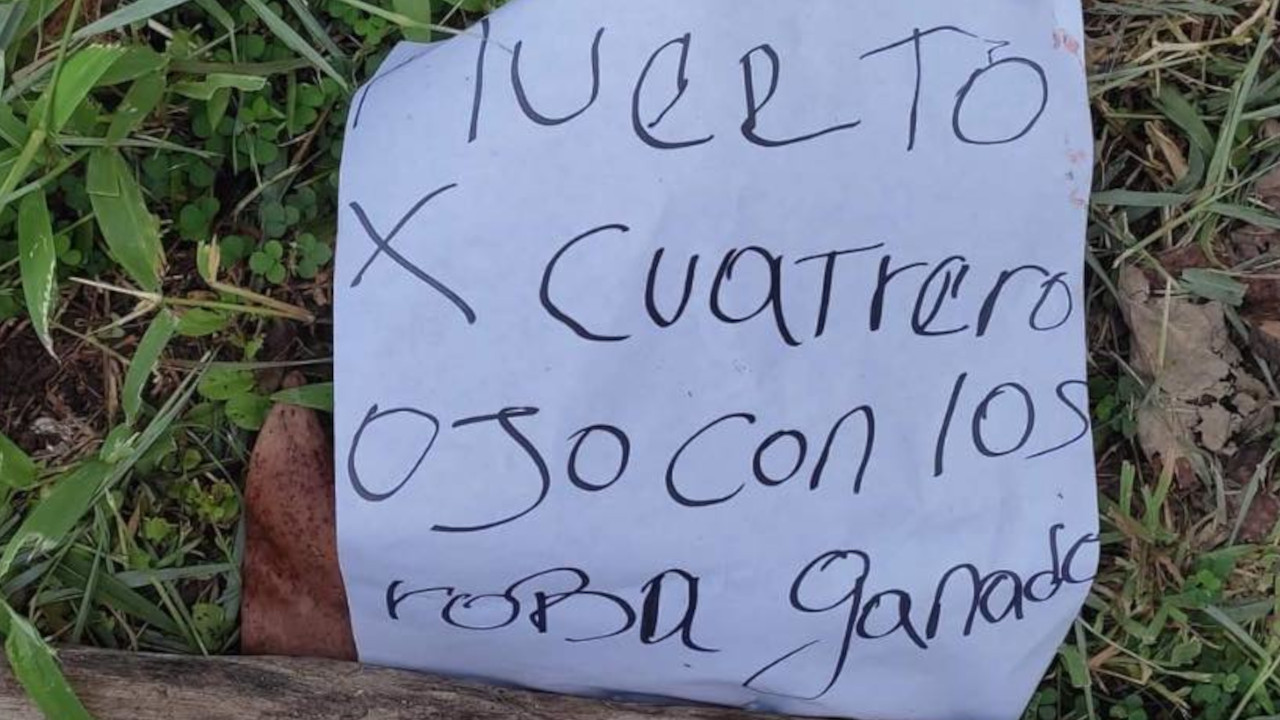 MUERTO
X CUATrero
OJO CON los
roBA ganado